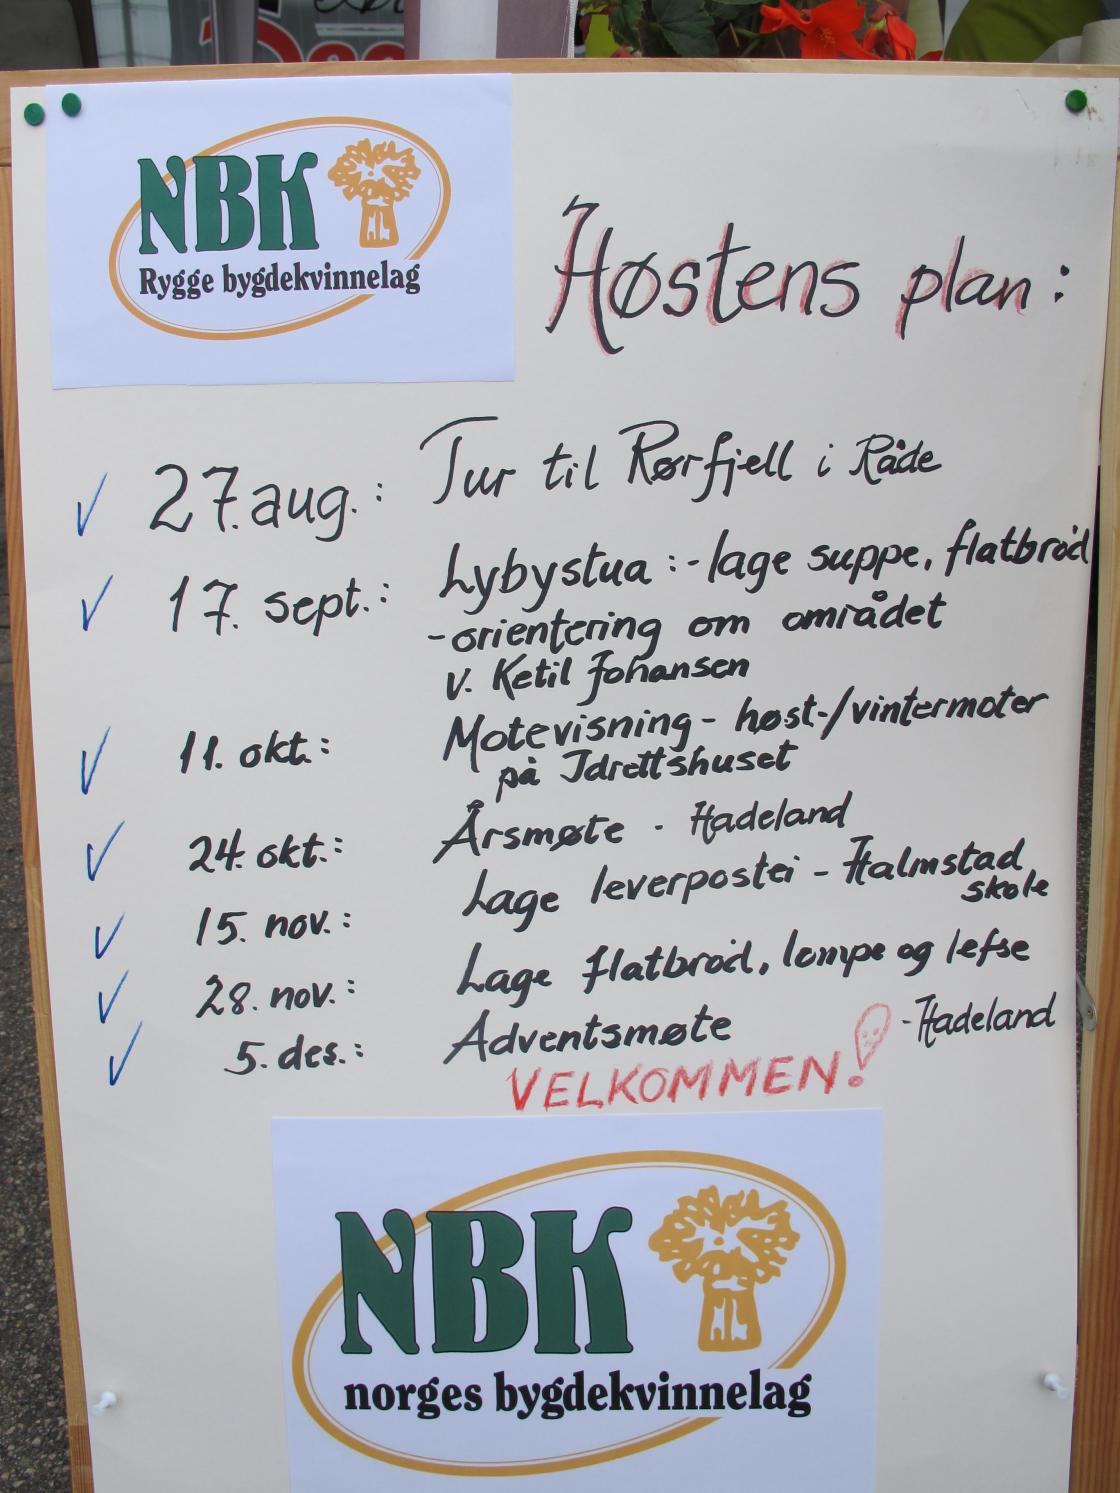 NBK
Rygge bygdekvinnelag
Høstens plan:
27. aug.: Tur til Rørfjell i Råde
17. sept.: Lybystua:- lage suppe, flatbrød
-orientering om området
v. Ketil Johansen
11. okt.: Motevisning - høst-/vintermoter
på Idrettshuset
24. okt.: Årsmøte - Hadeland
15. nov.: Lage leverpostei - Halmstad
skole
28. nov.: Lage flatbrød, lompe og lefse
5. des.: Adventsmøte - Hadeland
VELKOMMEN!
NBK
norges bygdekvinnelag